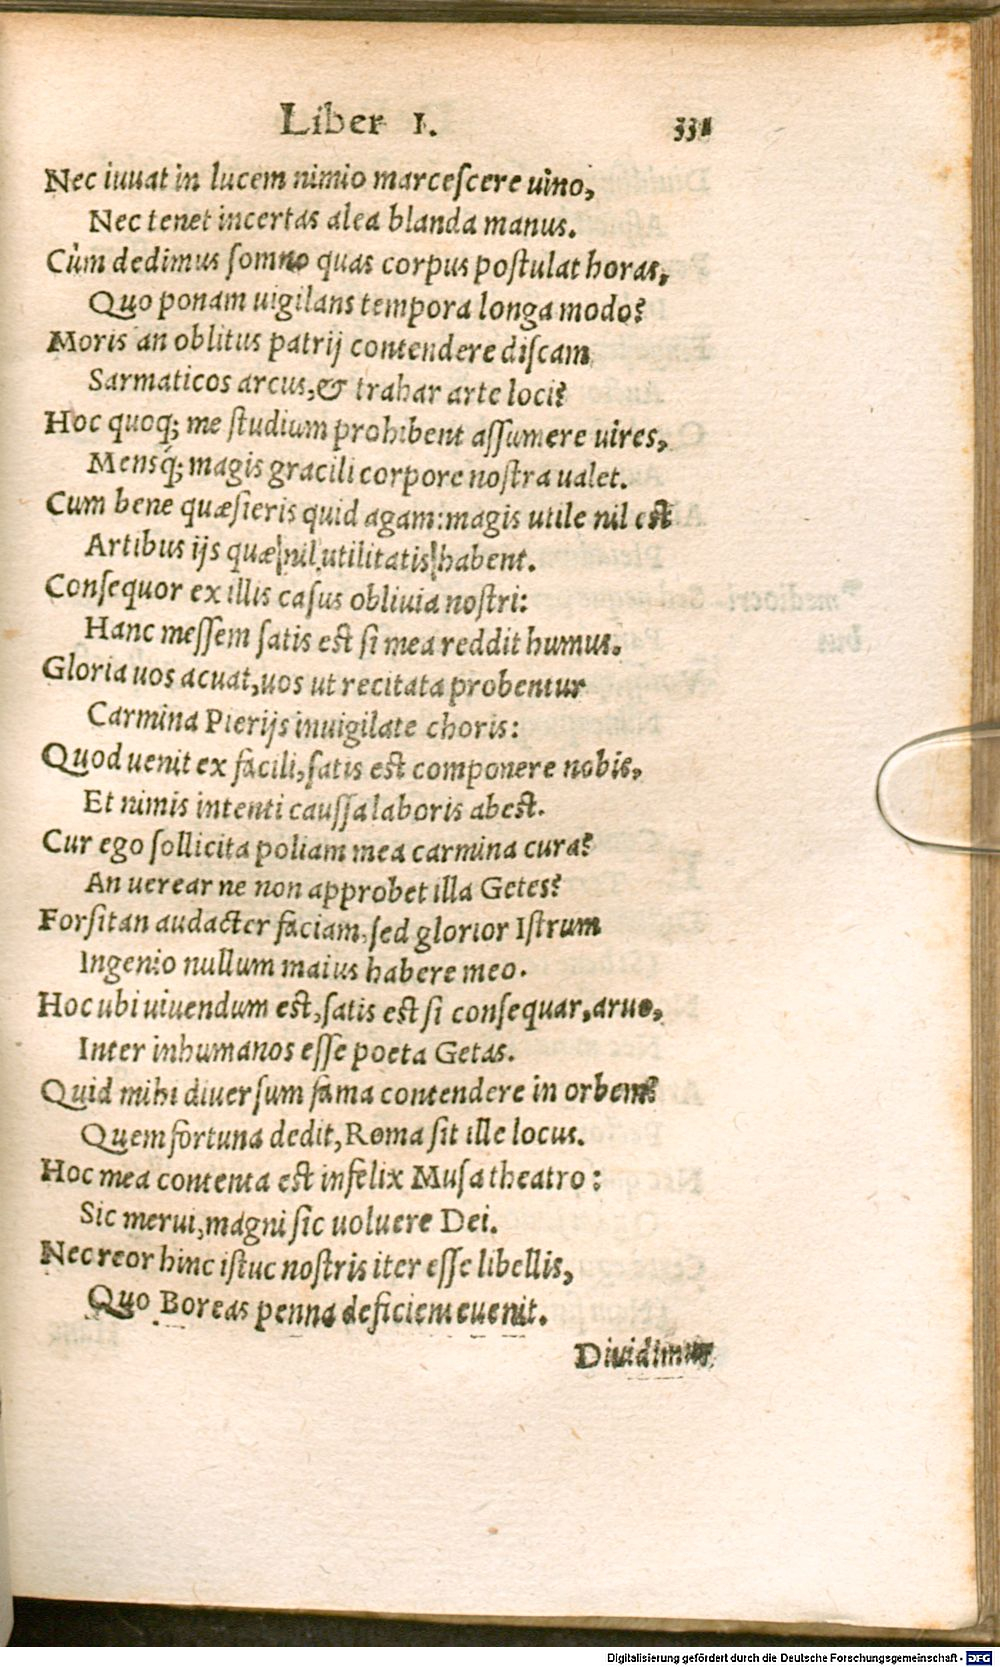 Liber I. 331
Nec iuuat in lucem nimio marceſcere uino,
Nec tenet incertas alea blanda manus.
Cùm dedimus ſomno quas corpus poſtulat horas,
Quo ponam uigilans tempora longa modo?
Moris an oblitus patrij contendere diſcam
Sarmaticos arcus, & trahar arte loci?
Hoc quoq; me ſtudium prohibent aſſumere uires,
Mensq́; magis gracili corpore noſtra ualet.
Cum bene quæſieris quid agam: magis utile nil eſt
Artibus ijs quæ nil utilitatis habent.
Conſequor ex illis caſus obliuia noſtri:
Hanc meſſem ſatis eſt ſi mea reddit humus.
Gloria uos acuat, uos ut recitata probentur
Carmina Pierijs inuigilate choris:
Quod uenit ex facili, ſatis eſt componere nobis,
Et nimis intenti cauſſa laboris abeſt.
Cur ego ſollicita poliam mea carmina cura?
An uerear ne non approbet illa Getes?
Forſitan audacter faciam, ſed glorior Iſtrum
Ingenio nullum maius habere meo.
Hoc ubi uiuendum eſt, ſatis eſt ſi conſequar, aruo,
Inter inhumanos eſſe poeta Getas.
Quid mihi diuerſum fama contendere in orbem?
Quem fortuna dedit, Roma ſit ille locus.
Hoc mea contenta eſt infelix Muſa theatro:
Sic merui, magni ſic uoluere Dei.
Nec reor hinc iſtuc noſtris iter eſſe libellis,
Quo Boreas penna deficiente uenit.
Diuidimur
Digitalisierung gefördert durch die Deutsche Forschungsgemeinschaft - DFG